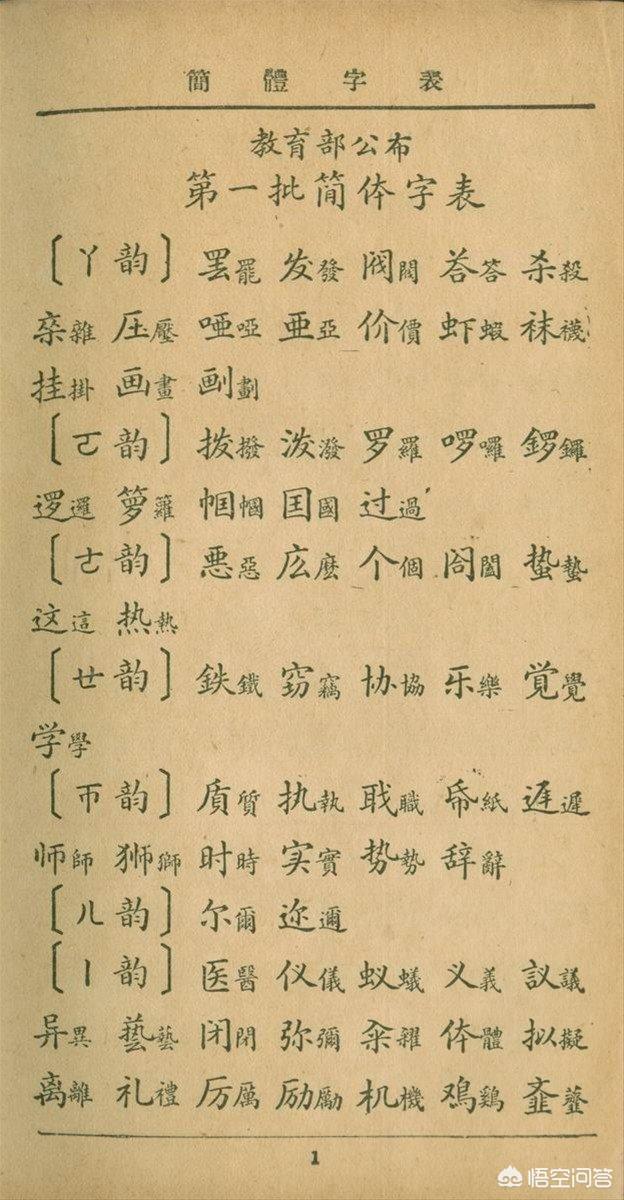 簡體字表
教育部公布
第一批简体字表
〔ㄚ韵〕 罢罷 发發 阀閥 荅答 杀殺
杂雜 压壓 唖啞 亜亞 价價 虾蝦 袜襪
挂掛 画畫 劃
〔ㄛ韵〕 拨撥 泼潑 罗羅 啰囉 鑼
逻邏 箩籮 帼幗 国國 过過
〔ㄜ韵〕 悪惡 庅麼 个個 阁閣 蛰蟄
这這 热熱
〔ㄝ韵〕 鉄鐵 窃竊 协協 乐樂 覚覺
学學
〔ㄭ韵〕 貭質 执執 耺職 帋紙 遅遲
师師 狮獅 时時 实實 势勢 辞辭
〔ㄦ韵〕 尔爾 迩邇
〔ㄧ韵〕 医醫 仪儀 蚁蟻 义義 議
异異 藝 闭閉 弥彌 籴糴 体體 拟擬
离離 礼禮 厉厲 励勵 机機 鸡鷄 齑齏
1
悟空问答